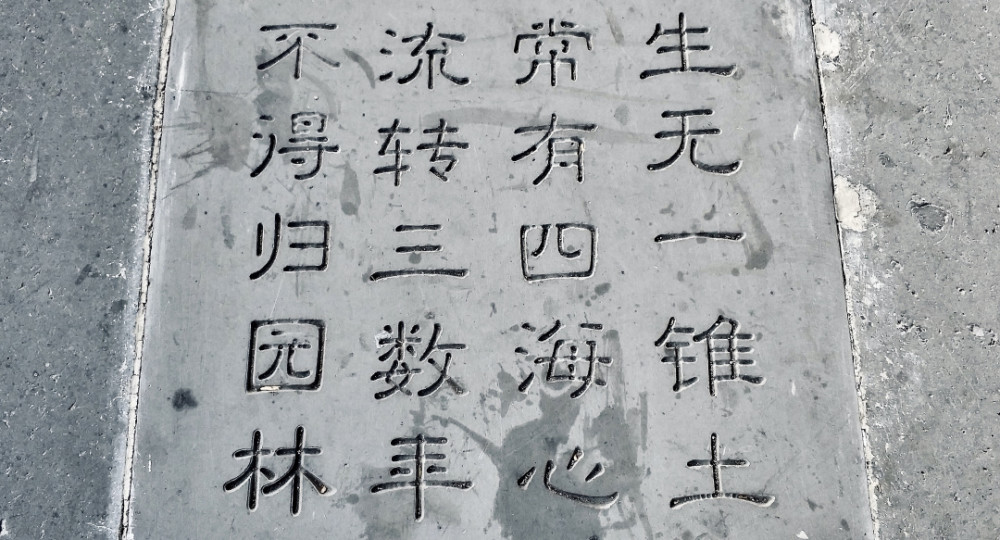 生无一锥土
常有四海心
流转三数年
不得归园林